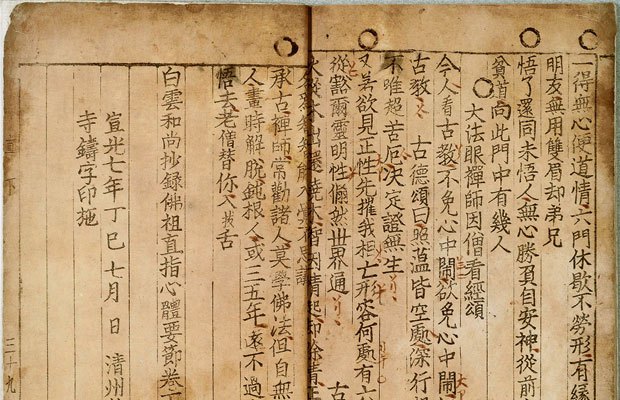 一得無心便道情六門休歇不勞形有緣
朋友無用雙眉却弟兄
悟了還同未悟人無心勝負自安神從前
貧道向此門中有幾人
大法眼禪師因僧看經頌
今人看古教不免心中鬧欲免心中鬧
古教 古德頌曰照蘊皆空處深行
不唯超苦厄決定證無生
又若欲見正性先摧我相亡形容何處有六
從豁爾靈明性翛然世界通 古
出還燒木智因情起卽除情
承古禪師常勸諸人莫學佛法但自無
人晝時解脫鈍根人或三五年遠不過
悟去老僧替你入拔舌
白雲和尚抄錄佛祖直指心體要節卷下
宣光七年丁巳七月 日 淸州
寺鑄字印施
直下 三十九